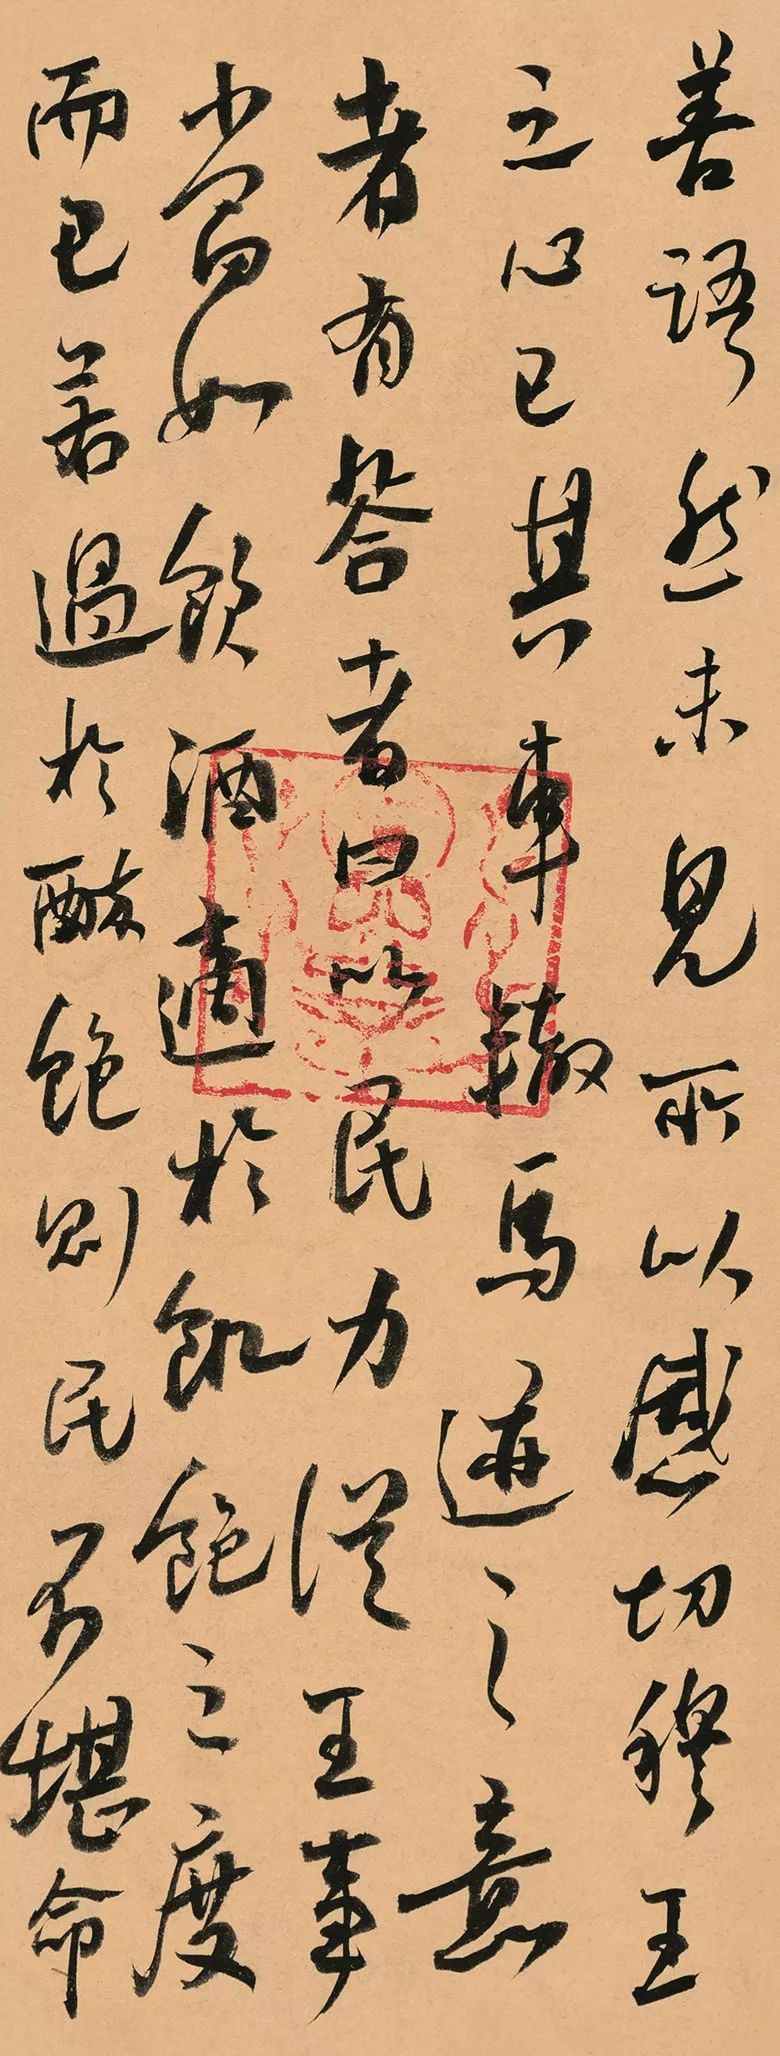 善語然未見所以感切穆王
之心已其車轍馬迹之意
者有答者曰以民力從王事
當如飲酒適於飢飽之度
而已若過於醉飽則民不堪命